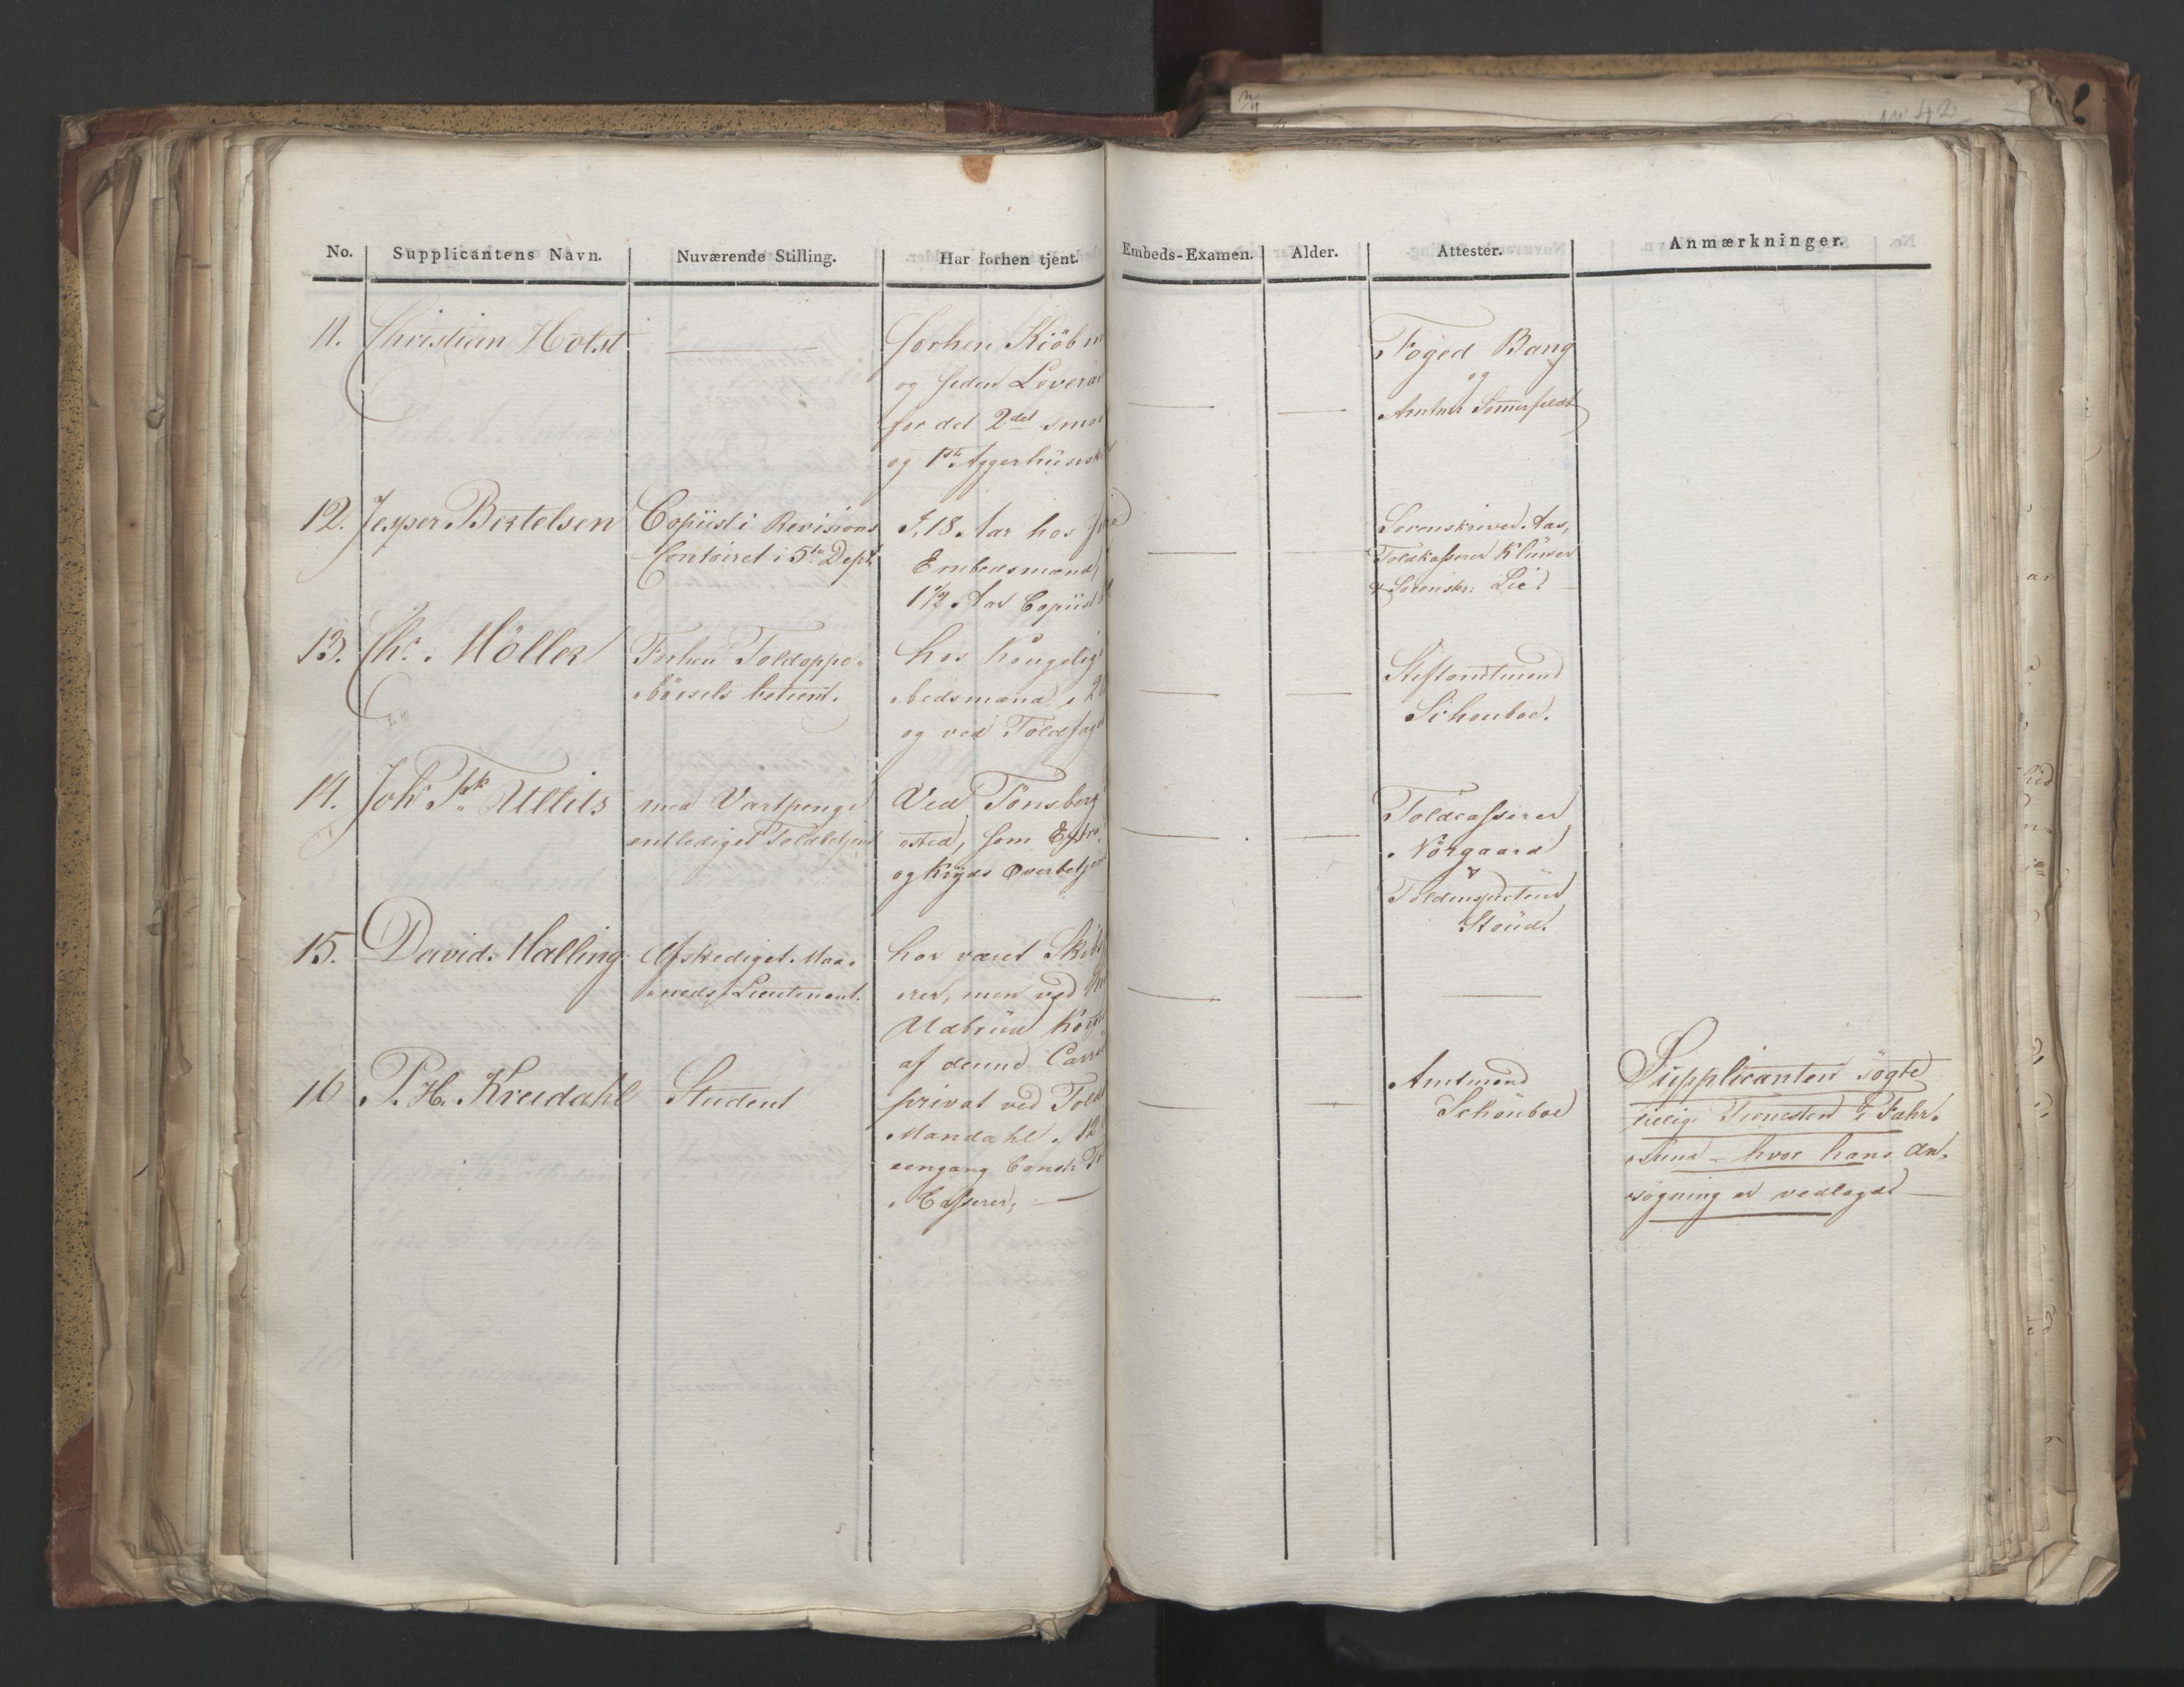 No. Supplicantens Navn. Nuværende Stilling. Har forhen tjent. Embeds-Examen. Alder. Attester. Anmærkninger.
11. Christian Holst — forhen Kiöbm
og siden Leveran
for det 2det smaa
og 1ste Aggerhuussk
— — Foged Bang
og
Amtmr Somerfeldt
12. Jesper Bertelsen Copiist i Revisions
Contoiret i 5te Dept
I 18 Aar hos
Embedsmænd,
1 1/2 Aar Copiist
— Sorenskriver Aas,
Toldkasserer Klüwer
& Sorenskr: Lie. —
13. Chr. Möller Forhen Toldoppe-
börsels betient.
hos Kongelig
bedsmænd i 2
og ved Toldfaget
— — Stiftamtmand
Schouboe.
14. Joh. Fk Ullits med Vartpenge
entlediget Toldbetjent
Ved Tönsberg
sted, som Extra
og Kryds Overbetjent
— — Toldcasserer
Nörgaard
&
Toldinspecteur
Stoud.
15. David Malling Afskediget Maa-
neds Lieutenant.
har været Skibs
rer, men ved
Udbrud
af denne
— — —
16 P. H. Kreidahl Student
privat ved Told
Mandahl i 12
eengang Const:
Casserer, —
— — Amtmand
Schouboe
Supplicanten sögte
tillige Tienesten i Fahr-
sund - hvor hans An-
sögning er vedlagt —
42